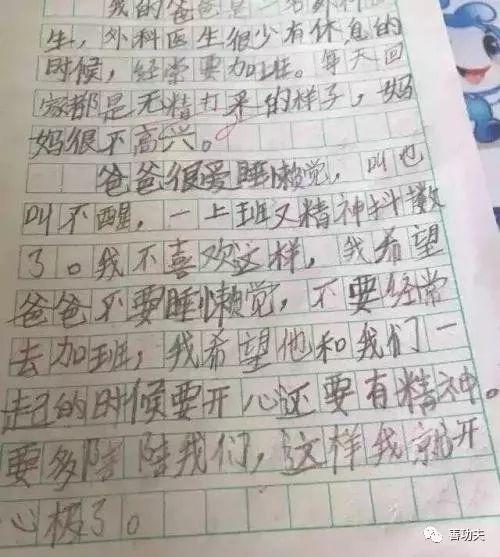 我的爸爸是一名外科医
生，外科医生很少有休息的
时候，经常要加班。每天回
家都是无精打采的样子，妈
妈很不高兴。
爸爸很爱睡懒觉，叫也
叫不醒，一上班又精神抖数
了。我不喜欢这样，我希望
爸爸不要睡懒觉，不要经常
去加班，我希望他和我们一
起的时候要开心还要有精神。
要多陪陪我们，这样我就开
心极了。
善功夫